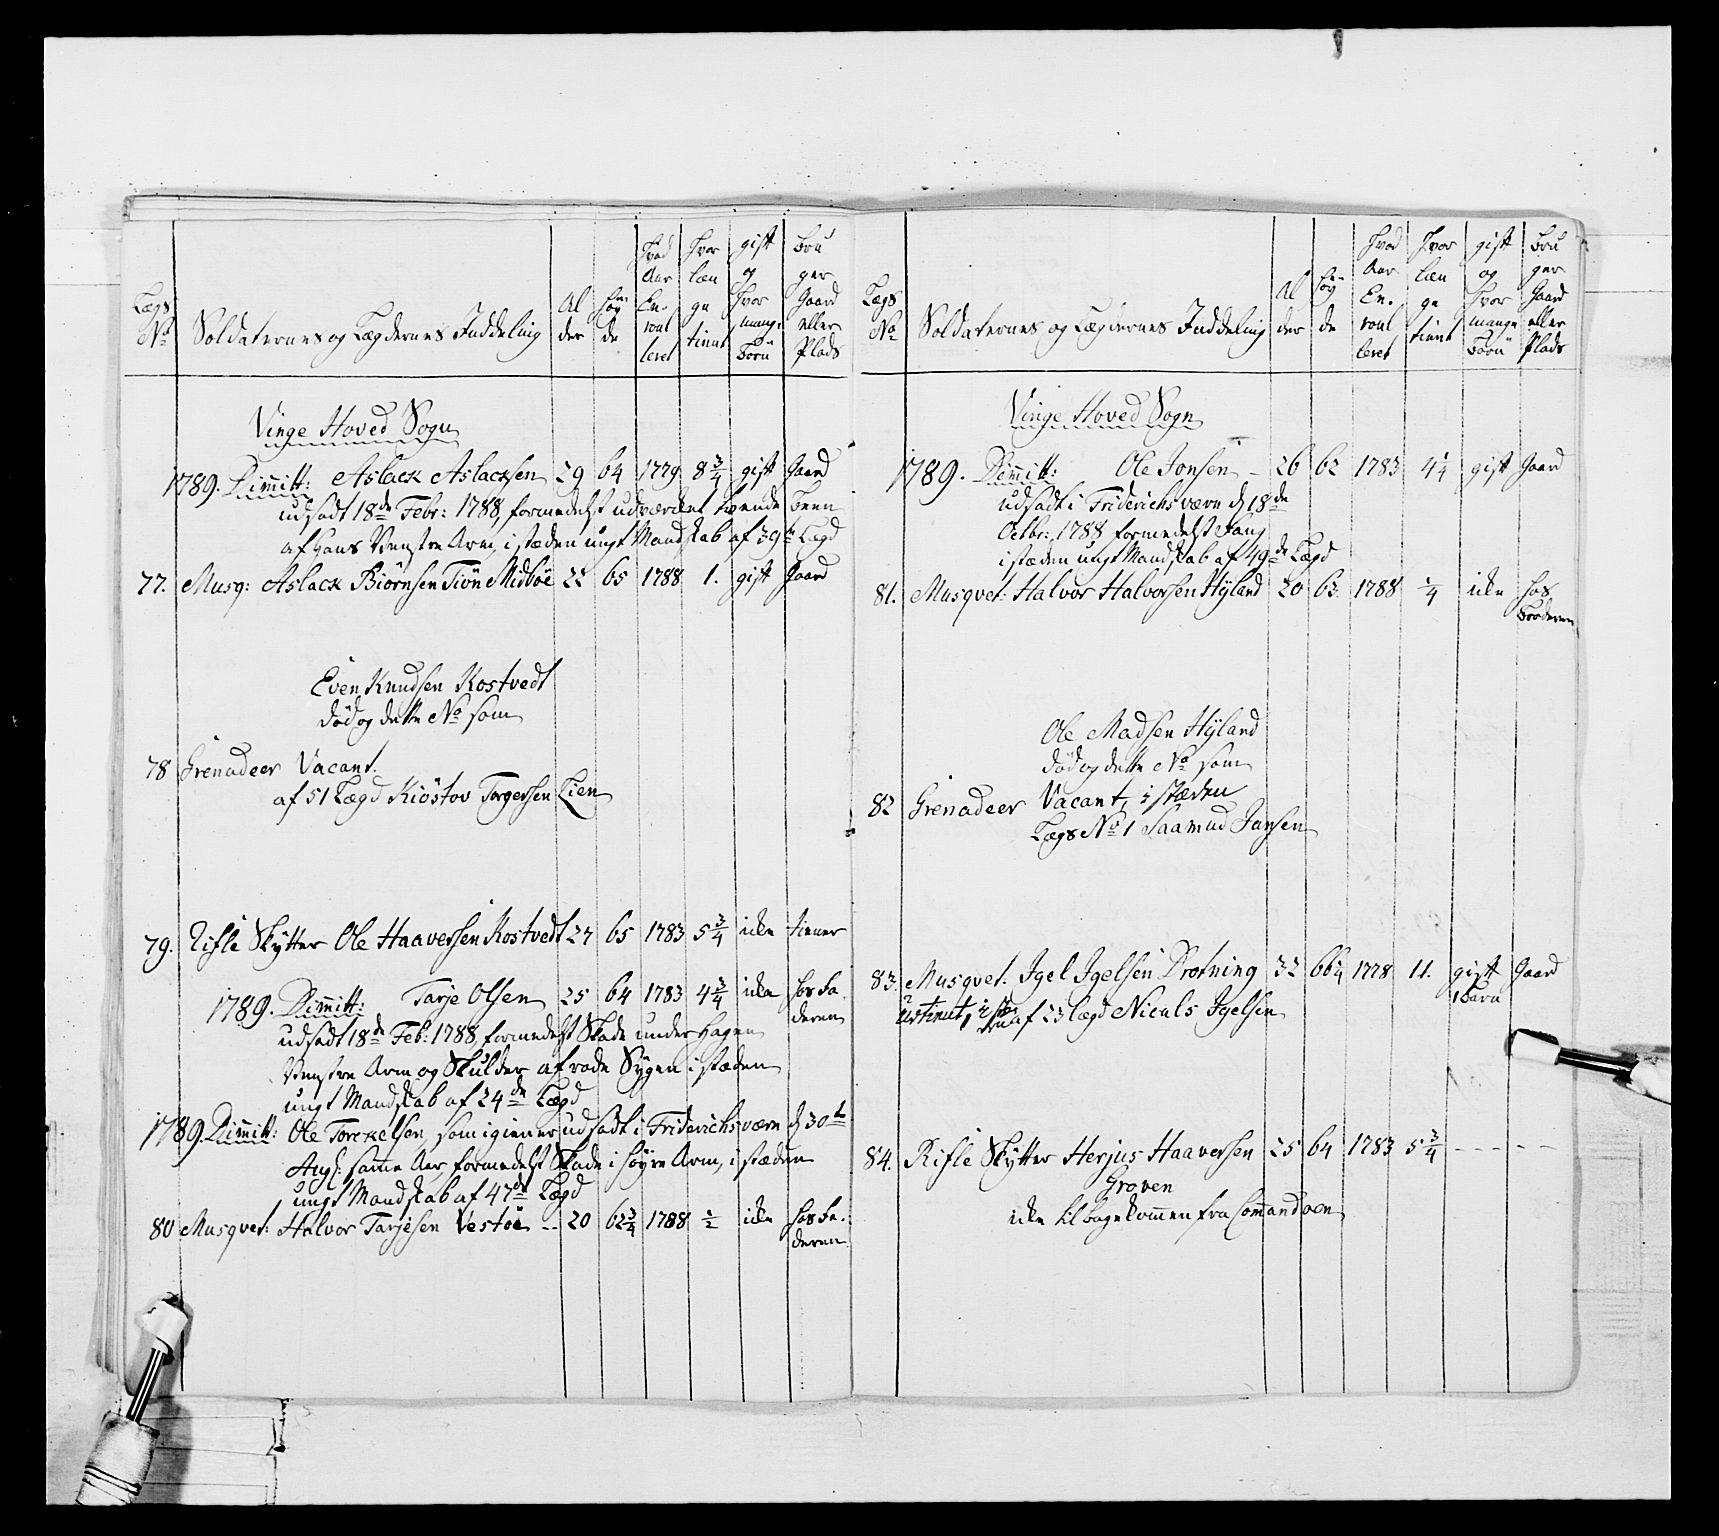 Lægs No
Soldaternes og Lægdernes Inddeling
Al der
Høy de
Hvad Aar En roul leret
Hvor læn ge tient
gift og Hvor mange Børn
bru ger Gaard eller Plads
Vinge Hoved Sogn
1789. Dimitt: Aslack Aslacksen 29 64 1779 8 3/4 gift Gaard
udsadt 18de Febr: 1788, formedelst udværdet tvende Been
af hans Venstre Arm, i stæden ungt Mandskab af 39te Lægd
77. Musq: Aslack Biörnsen Midböe 22 65 1788 1. gift Gaard
Even Knudsen Kostvedt
död og dette No som
78 Grenadeer Vacant.
af 51 Lægd Kiöstov Torgersen Lien
79. Rifle Skÿtter Ole Haaversen Kostvedt 27 65 1783 5 3/4 ikke tiener
1789. Dimitt: Tarje Olsen 25 64 1783 4 3/4 ikke hos Fa
deren
udsadt 18de Feb: 1788, formedelst Skade under Hagen
Venstre Arm og Skulder af rode Sygen i stæden
ungt Mandskab af 24de Lægd
1789. Dimitt: Ole Torckelsen, som igien er udsadt i Friderichsværn d 30te
Aug: samme Aar, formedelst Skade i høyre Arm, i stæden
ungt Mandskab af 47de Lægd
80 Musqvet: Halvor Tarjesen Vestöe -- 20 62 3/4 1788 1/2 ikke hos Fa:
deren
Lægs No
Soldaternes og Lægdernes Inddeling
Al der
Høy de
Hvad Aar En roul leret
Hvor læn ge tient
gift og Hvor mange Børn
bru ger Gaard eller Plads
Vinge Hoved Sogn
1789. Dimitt: Ole Jonsen - 26 62 1783 4 1/4 gift Gaard
udsadt i Friderichsværn d 18de
Octbr: 1788 formedelst
i stæden ungt Mandskab af 49de Lægd
81. Musqvet: Halvor Halvorsen Hÿland 20 63 1788 1/4 ikke hos
Broderen
Ole Madsen Hÿland
död og dette No som
82 Grenadeer Vacant, i stæden
Lægs No 1 Saamud Jansen
83. Musqvet. Igel Igelsen Drotning 32 66 1/4 1778 11. gift Gaard
1 Barn
udtient, i stæden af 23 lægd Nicals Igelsen
84. Rifle Skÿtter Herjus Haaversen 25 64 1783 5 3/4 - - - - - -
Groven
ikke tilbagekommen fra Commandoen